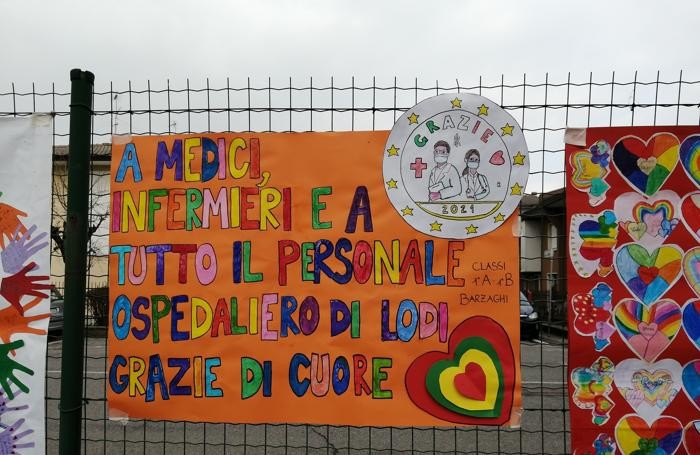 A MEDICI,
INFERMIERI E A
TUTTO IL PERSONALE
OSPEDALIERO DI LODI
GRAZIE DI CUORE
GRAZIE
2021
CLASSI
1ªA-1ªB
BARZAGHI